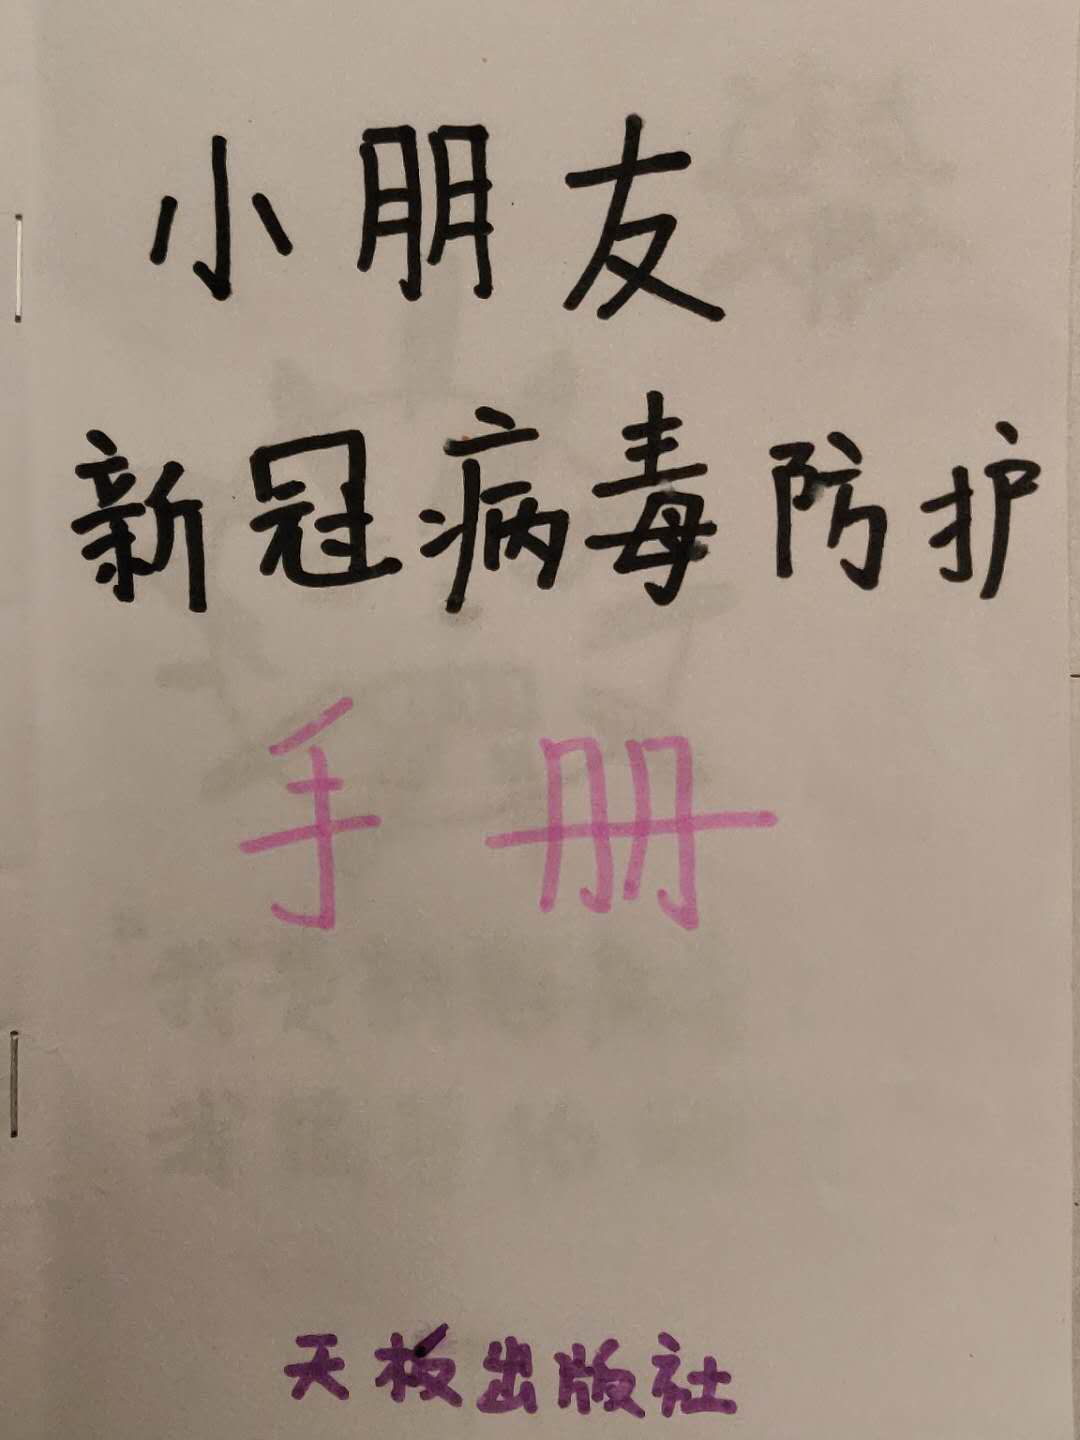 小朋友
新冠病毒防护
手册
天板出版社